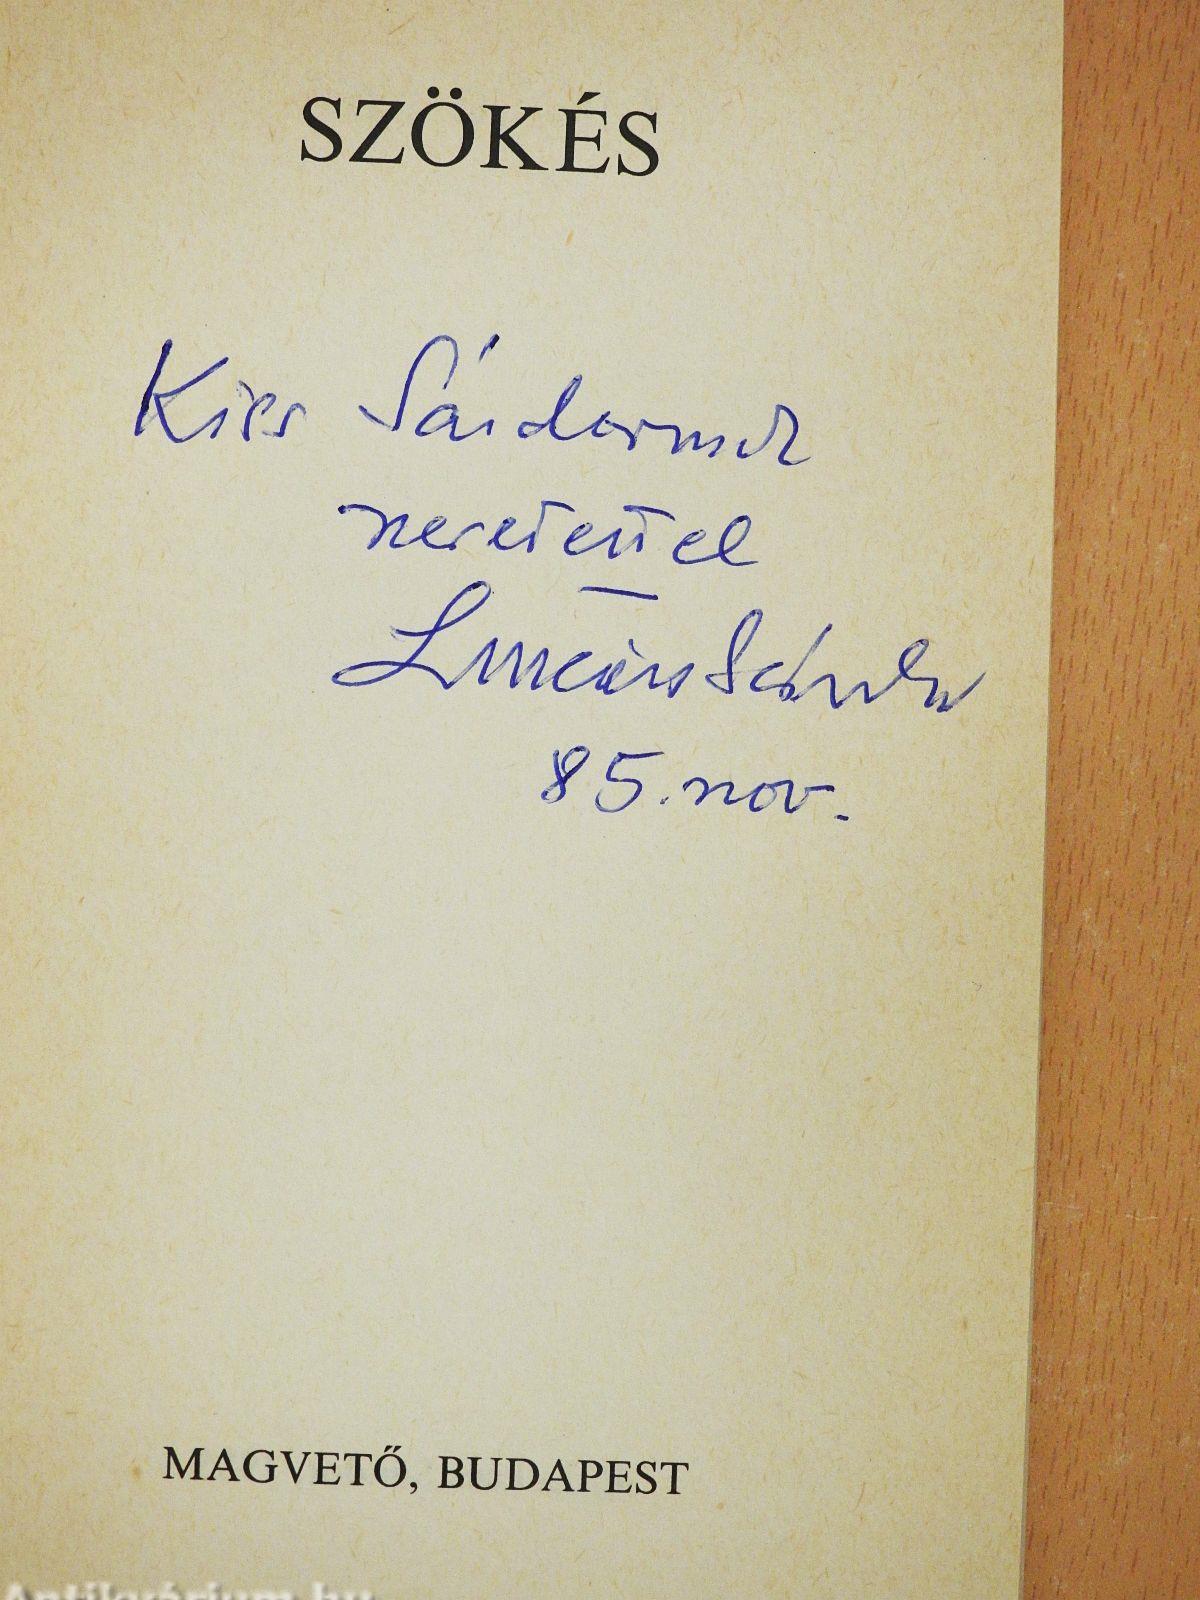 SZÖKÉS
Kiss Sándornak
szeretettel
85. nov.
MAGVETŐ, BUDAPEST
Antikvárium.hu